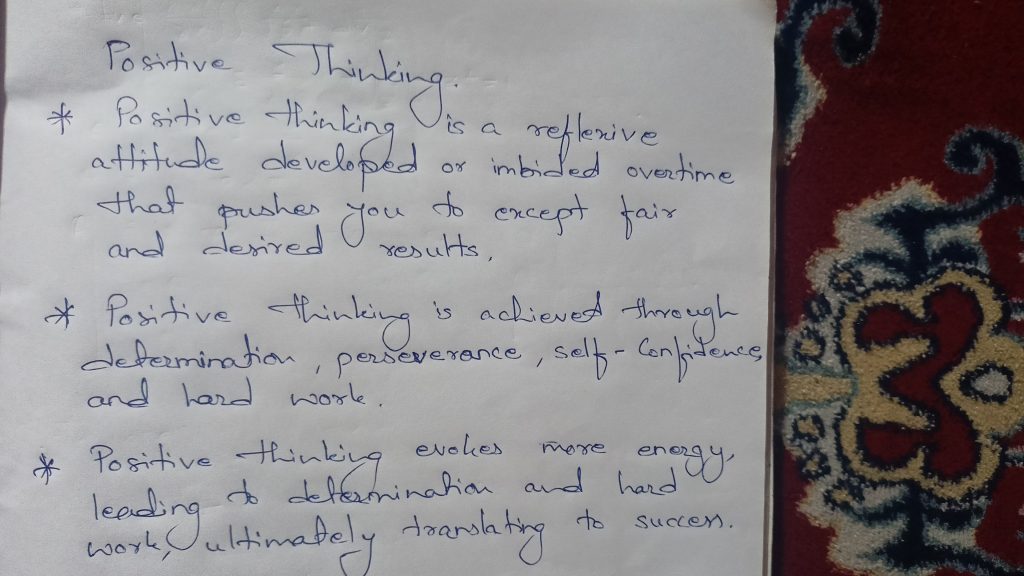 Positive Thinking.
* Positive thinking is a reflexive
attitude developed or imbided overtime
that pushes you to except fair
and desired results,
* Positive thinking is achieved through
determination, perseverance, self-Confidence,
and hard work.
* Positive thinking evokes more energy,
leading to determination and hard
work, ultimately translating to success.